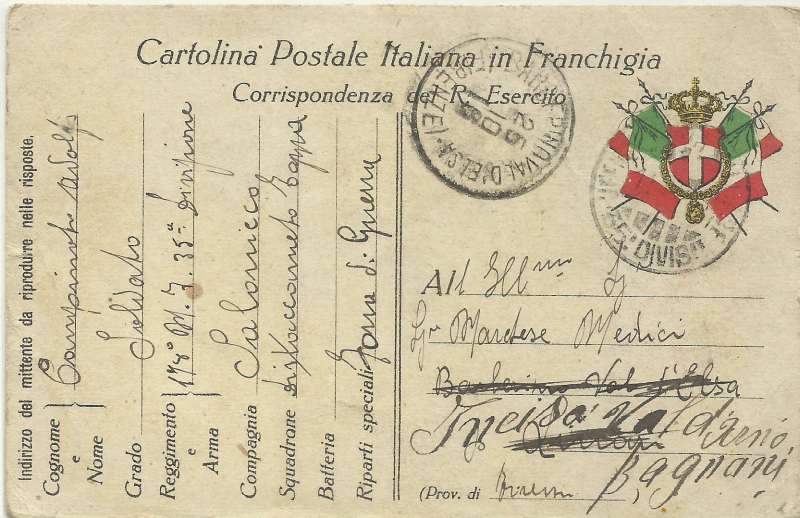 Cartolina Postale Italiana in Franchigia
Corrispondenza del R. Esercito
BARBERINO VAL D'ELSA (FIRENZE)
25 10
35ª DIVISI
Indirizzo del mittente da riprodurre nelle risposte.
Cognome e Nome } Campinoti Adolfo
Grado Soldato
Reggimento e Arma } M. T. 35ª Divisione
Compagnia Salonicco
Squadrone Distaccamento Tappa
Batteria
Riparti speciali Zona di Guerra
All Ill.mo
Marchese Medici
Barberino Val d'Elsa
Incisa Valdarno
Bagnani
(Prov. di Firenze)